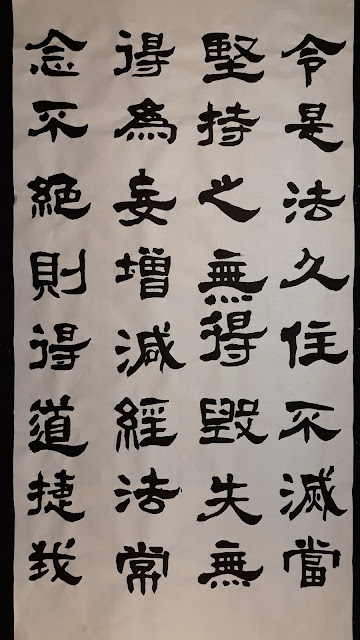 令是法久住不滅當
堅持之無得毀失無
得為妄增減經法常
念不絕則得道捷我